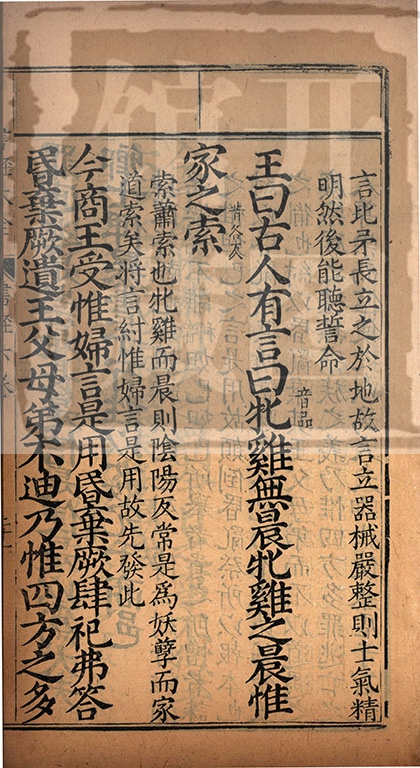 言比矛長立之於地故言立器械嚴整則士氣精
明然後能聽誓命
王曰古人有言曰牝雞無晨牝雞之晨惟
音品
家之索
昔各反
索蕭索也牝雞而晨則陰陽反常是為妖孽而家
道索矣將言紂惟婦言是用故先發此
今商王受惟婦言是用昬棄厥肆祀弗答
昬棄厥遺王父母弟不迪乃惟四方之多